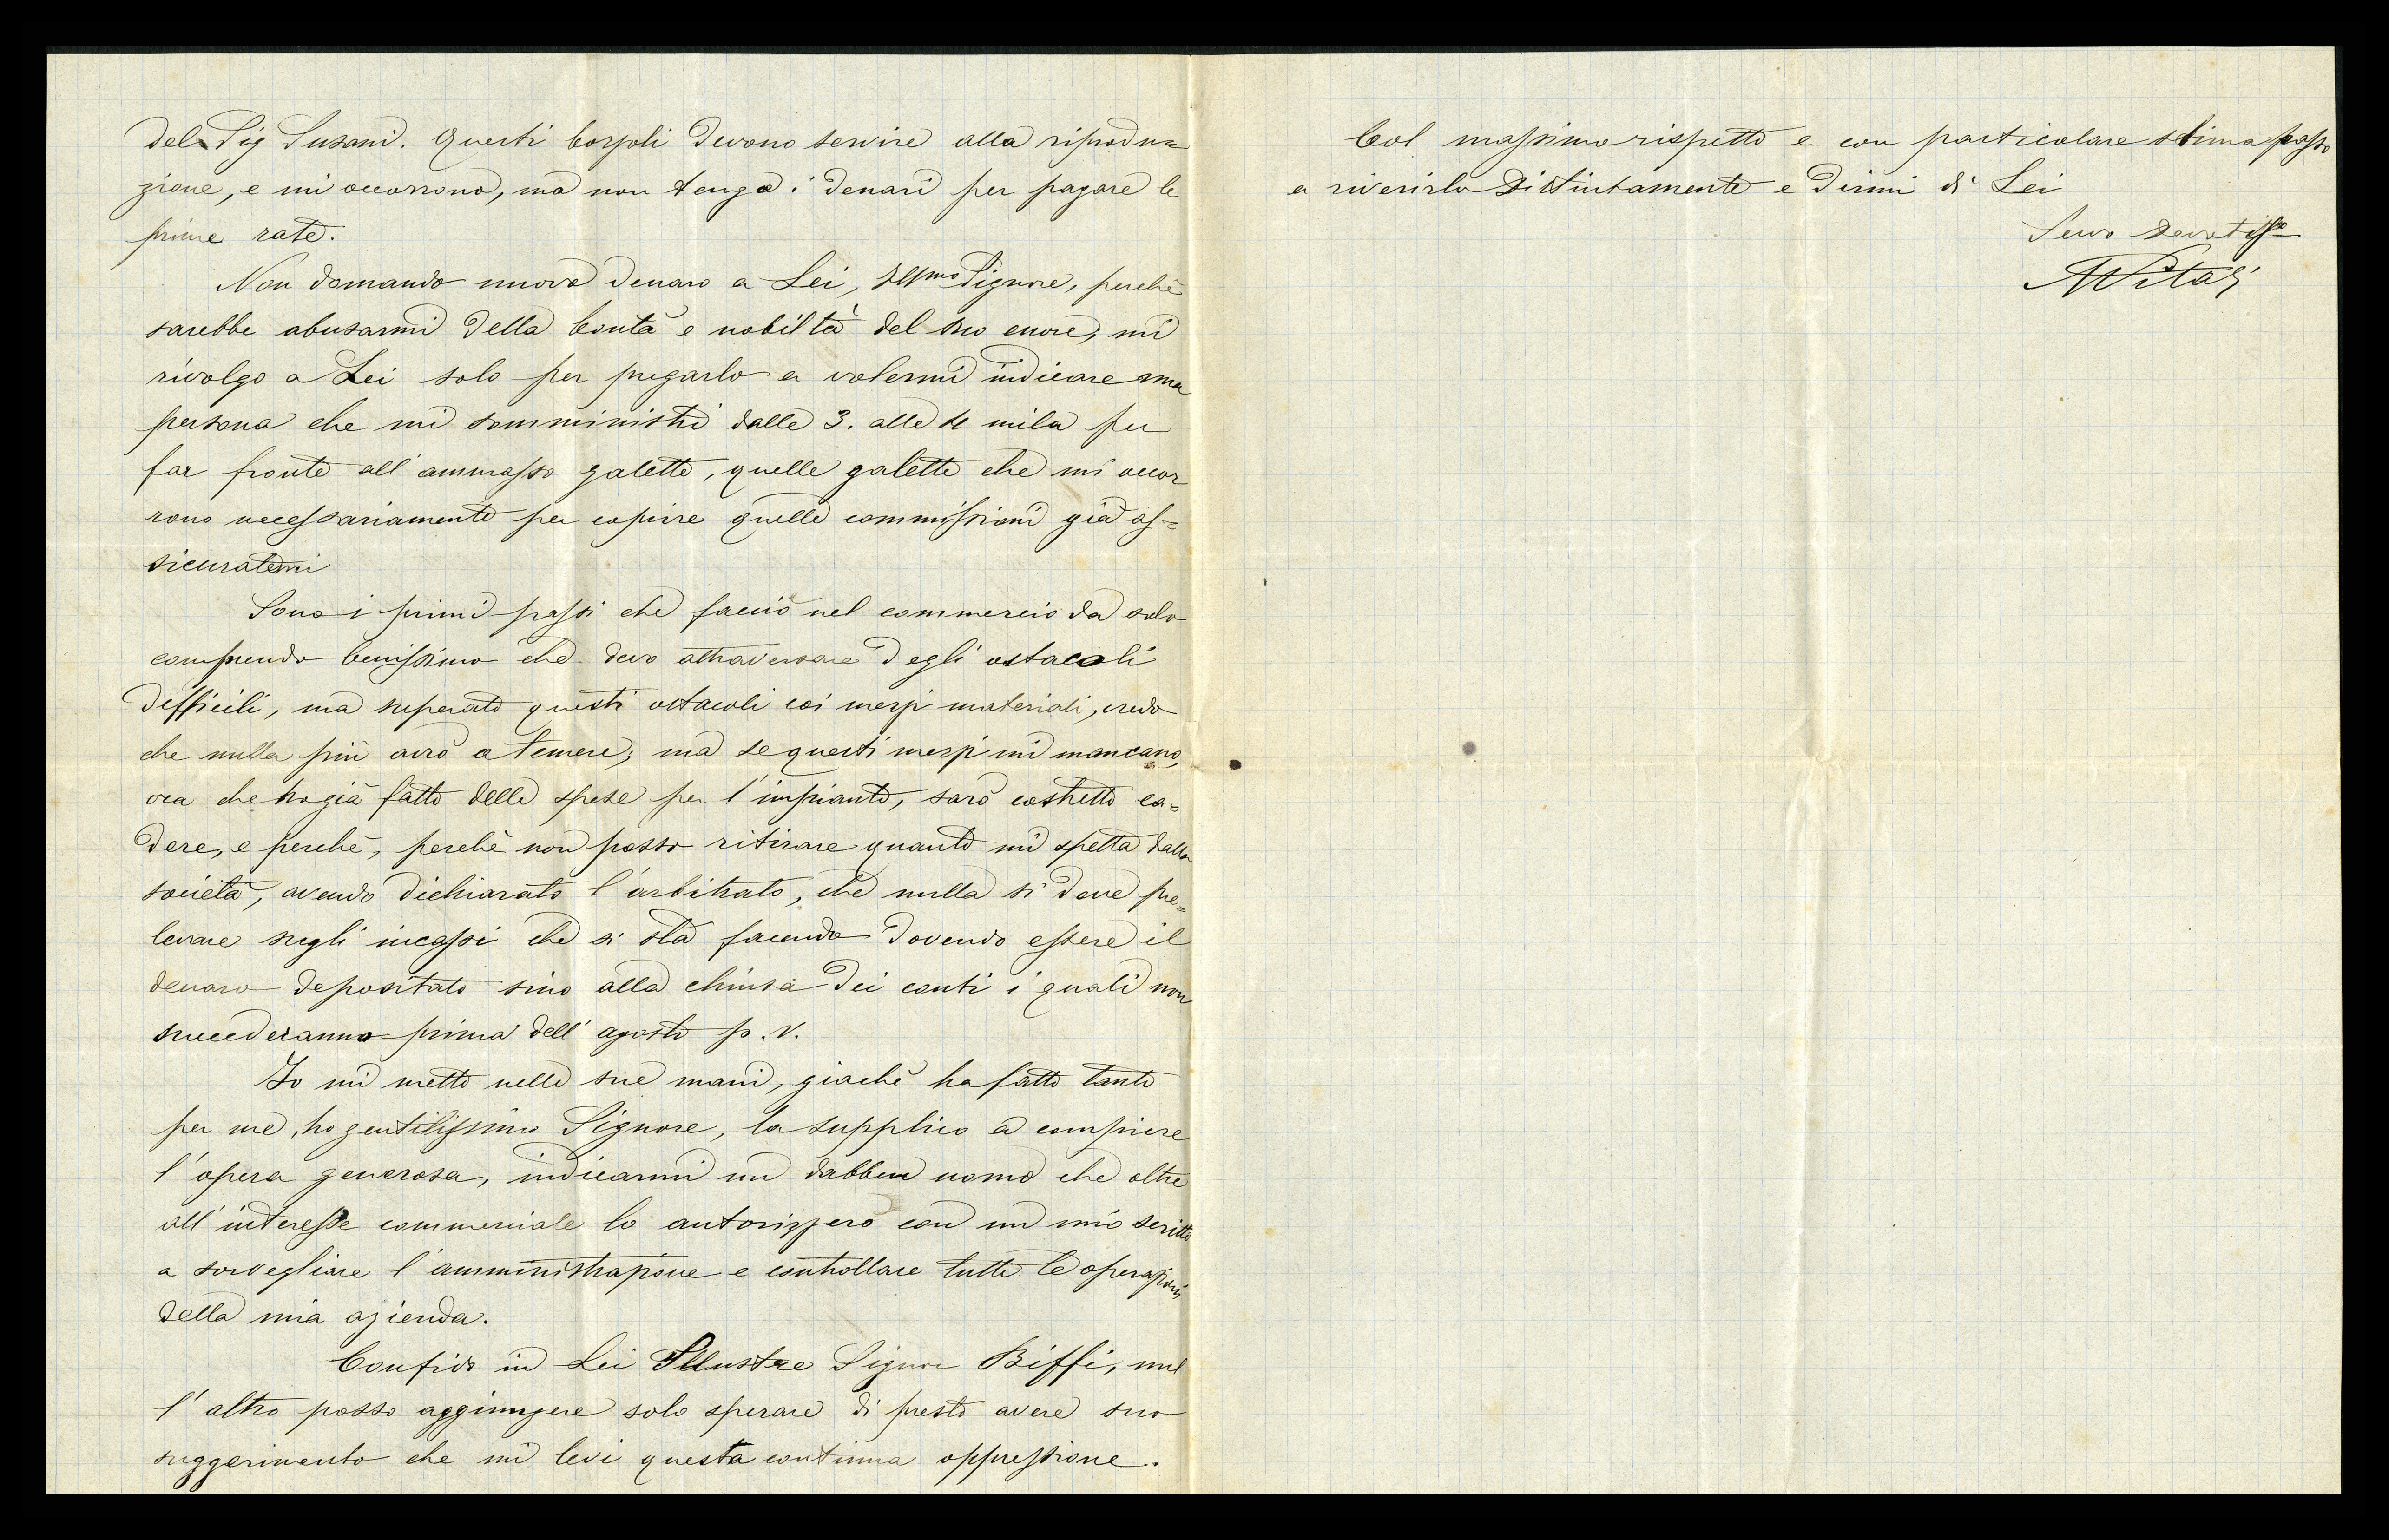 del Sig Susani. Questi bozzoli devono servire alla riprodu=
zione, e mi occorrono, ma non tengo i denari per pagare le
prime rate.
Non domando nuovo denaro a Lei, Illmo Signore, perchè
sarebbe abusarmi della bontà e nobiltà del suo cuore; mi
rivolgo a Lei solo per pregarlo a volermi indicare una
persona che mi somministri dalle 3. alle 4 mila per
far fronte all'ammasso galette, quelle galette che mi occor
rono necessariamente per copire quelle commissioni già as=
sicuratemi
Sono i primi passi che faccio nel commercio da solo
comprendo benissimo che devo attraversare degli ostacoli
difficili, ma superato questi ostacoli coi mezzi materiali, credo
che nulla più avrò a temere; ma se questi mezzi mi mancano,
ora che ho già fatto delle spese per l'impianto, sarò costretto ca=
dere, e perchè, perchè non posso ritirare quanto mi spetta dalla
società, avendo dichiarato l'arbitrato, che nulla si deve pre=
levare sugli incassi che si stà facendo dovendo essere il
denaro depositato sino alla chiusa dei conti i quali non
succederanno prima dell'agosto p.v.
Io mi metto nelle sue mani, giachè ha fatto tanto
per me, ho gentilissimo Signore, la supplico a compiere
l'opera generosa, indicarmi un dabben uomo che oltre
all'interesse commerciale lo autorizzerò con un mio scritto
a sorvegliare l'amministrazione e controllare tutte le operazioni
della mia azienda.
Confido in Lei Illustre Signor Biffi, nul
l'altro posso aggiungere solo sperare di presto avere suo
suggerimento che mi levi questa continua oppressione.
Col massimo rispetto e con particolare stima passo
a riverirlo distintamente e dirmi di Lei
Servo devotisso